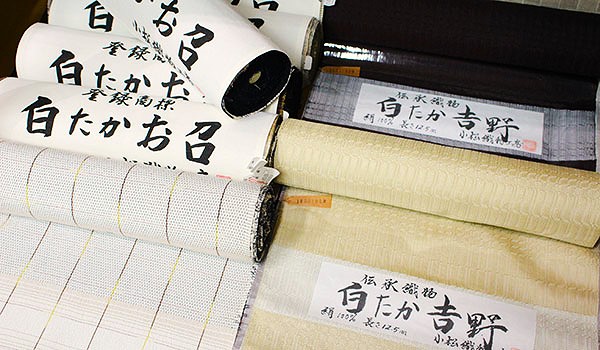 お召
登録商標
白たかお
登録商標
白たかお召
伝承織物
白たか吉野
絹100% 長さ12.5m
小松織物
伝承織物
白たか吉野
絹100% 長さ12.5m
小松織物